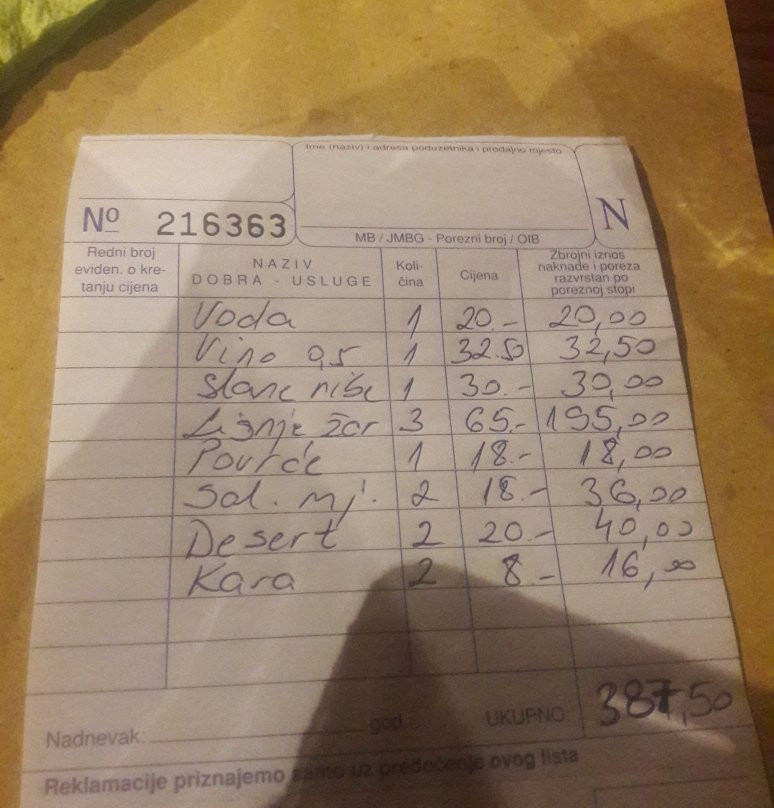 Ime (naziv) i adresa poduzetnika i prodajno mjesto
Nº 216363
N
MB / JMBG - Porezni broj / OIB
Redni broj eviden. o kre- tanju cijena
NAZIV DOBRA - USLUGE
Koli- čina
Cijena
Zbrojni iznos naknade i poreza razvrstan po poreznoj stopi
Voda 1 20.- 20,00
Vino 0,5 1 32.50 32,50
Slane ribe 1 30.- 30,00
Lignje žar 3 65.- 195,00
Povrće 1 18.- 18,00
Sal. mj. 2 18.- 36,00
Desert 2 20.- 40,00
Kava 2 8.- 16,00
Nadnevak: god. UKUPNO: 387,50
Reklamacije priznajemo samo uz predočenje ovog lista